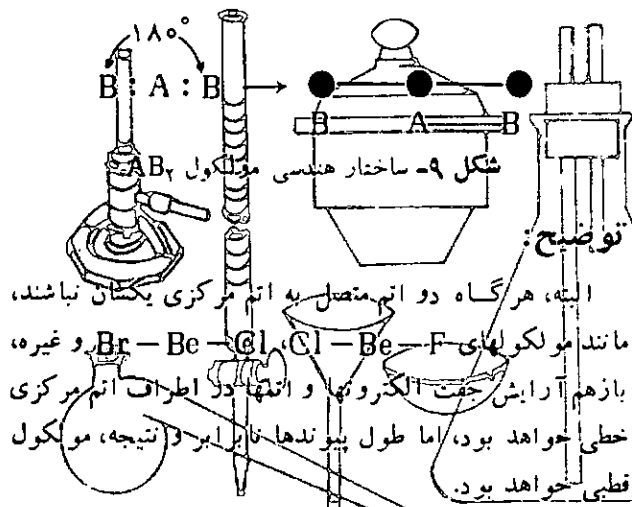 ۱۸۰°
B : A : B
B A B
شکل ۹- ساختار هندسی مولکول AB۲
توضیح:
البته، هر گاه دو اتم متصل به اتم مرکزی یکسان نباشند،
مانند مولکولهای Cl — Be — F، Br — Be — Cl و غیره،
بازهم آرایش جفت الکترونها و اتمها در اطراف اتم مرکزی
خطی خواهد بود، اما طول پیوندها نابرابر و نتیجه، مولکول
قطبی خواهد بود.